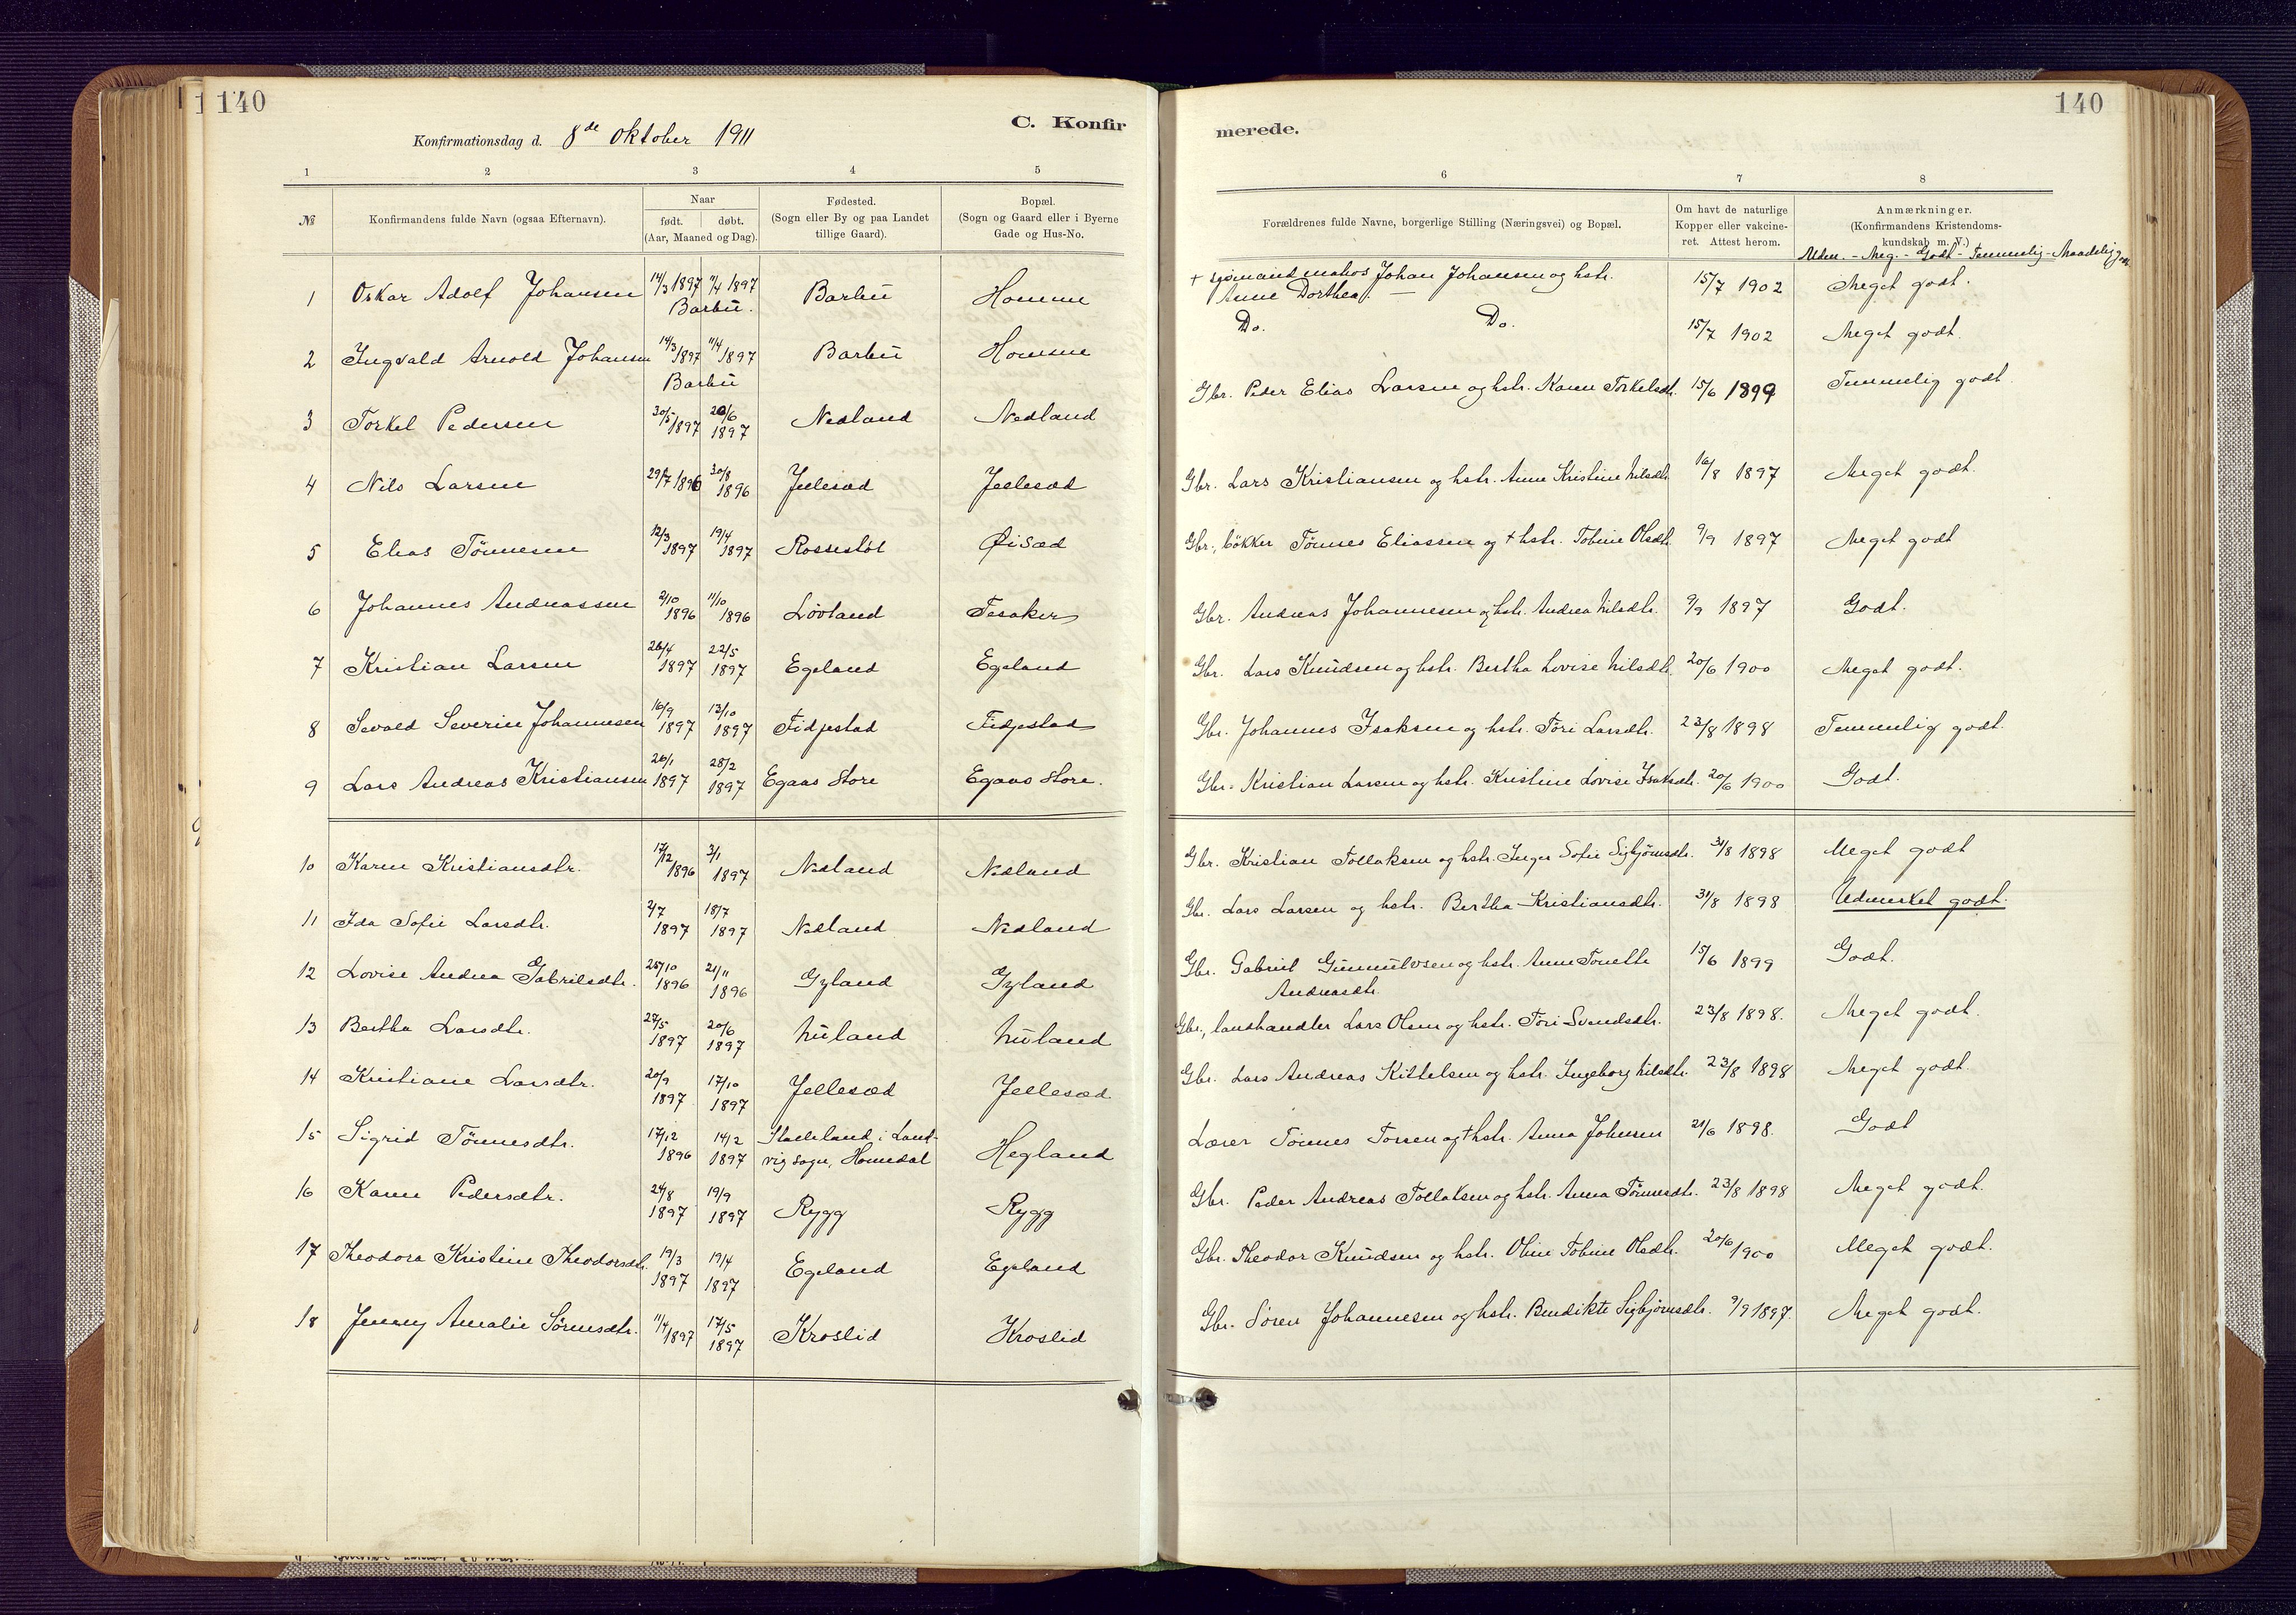 140
Konfirmationsdag d. 8de Oktober 1911
C. Konfir
1 2 3 4 5
№
Konfirmandens fulde Navn (ogsaa Efternavn).
Naar
født. døbt.
(Aar, Maaned og Dag).
Fødested.
(Sogn eller By og paa Landet
tillige Gaard).
Bopæl.
(Sogn og Gaard eller i Byerne
Gade og Hus-No.
1 Oskar Adolf Johansen 14/3 1897 11/4 1897 Barbu Homme
Barbu.
2 Ingvald Arnold Johansen 14/3 1897 11/4 1897 Barbu Homme
Barbu
3 Torkel Pedersen 30/5 1897 20/6 1897 Nedland Nedland
4 Nils Larsen 29/7 1896 30/8 1896 Jellesæd Jellesæd
5 Elias Tönnesen 12/3 1897 19/4 1897 Rossestöl Øisæd
6 Johannes Andreassen 2/10 1896 11/10 1896 Lövland Tesaker
7 Kristian Larsen 28/4 1897 22/5 1897 Egeland Egeland
8 Sevald Severin Johannesen 16/9 1897 13/10 1897 Fidjestad Fidjestad
9 Lars Andreas Kristiansen 26/1 1897 28/2 1897 Egaas Store Egaas Store.
10 Karen Kristiansdtr. 17/12 1896 3/1 1897 Nedland Nedland
11 Ida Sofie Larsdtr. 2/7 1897 18/7 1897 Nedland Nedland
12 Lovise Andrea Gabrielsdtr. 25/10 1896 21/11 1896 Gyland Gyland
13 Bertha Larsdtr. 27/5 1897 20/6 1897 Nuland Nuland
14 Kristiane Larsdtr. 20/9 1897 17/10 1897 Jellesæd Jellesæd
15 Sigrid Tönnesdtr. 17/12 1896 14/2 1897 i Land-
vig sogn, Homedal Hegland
16 Karen Pedersdtr. 24/8 1897 19/9 1897 Rygg Rygg
17 Theodora Kristine Theodorsdtr. 19/3 1897 19/4 1897 Egeland Egeland
18 Jenny Amalie Sörensdtr. 11/4 1897 17/5 1897 Kroslid Kroslid
140
merede.
6 7 8
Forældrenes fulde Navne, borgerlige Stilling (Næringsvei) og Bopæl.
Om havt de naturlige
Kopper eller vaccine-
ret. Attest herom.
Anmærkninger.
(Konfirmandens Kristendoms-
kundskab m. V.)
Udm. - Meg. - Godt - Temmelig - Maadelig godt
+ sjömand matros Johan Johansen og hstr.
Anne Dorthea. — 15/7 1902 Meget godt.
Do. Do. 15/7 1902 Meget godt.
Gbr. Peder Elias Larsen og hstr. Karen Torkelsdtr. 15/6 1899 Temmelig godt
Gbr. Lars Kristiansen og hstr. Anne Kristine Nilsdtr. 16/8 1897 Meget godt.
Gbr., bökker Tönnes Eliassen og + hstr. Tobine Olsdtr. 9/9 1897 Meget godt
Gbr. Andreas Johannesen og hstr. Andrea Nilsdtr. 9/9 1897 Godt.
Gbr. Lars Knudsen og hstr. Bertha Lovise Nilsdtr. 20/6 1900 Meget godt.
Gbr. Johannes Isaksen og hstr. Töri Larsdtr. 23/8 1898 Temmelig godt.
Gbr. Kristian Larsen og hstr. Kristine Lovise Isaksdtr. 20/6 1900 Godt.
Gbr. Kristian Tollaksen og hstr. Inger Sofie Sigbjörnsdtr. 31/8 1898 Meget godt
Gbr. Lars Larsen og hstr. Bertha Kristiansdtr. 31/8 1898 Udmerket godt.
Gbr. Gabriel Gunnulvsen og hstr. Anne Tonette
Andreasdtr. 15/6 1899 Godt.
Gbr., landhandler Lars Olsen og hstr. Töri Svendsdtr. 23/8 1898. Meget godt.
Gbr. Lars Andreas Kittelsen og hstr. Ingeborg Nilsdtr. 23/8 1898 Meget godt.
Lærer Tönnes Torsen og + hstr. Anna Johnsen 21/6 1898. Godt
Gbr. Peder Andreas Tollaksen og hstr. Anna Tönnesdtr. 23/8 1898 Meget godt.
Gbr. Theodor Knudsen og hstr. Oline Tobine Olsdtr. 20/6 1900 Meget godt.
Gbr. Sören Johannesen og hstr. Bendikte Sigbjörnsdtr. 9/9 1897. Meget godt.